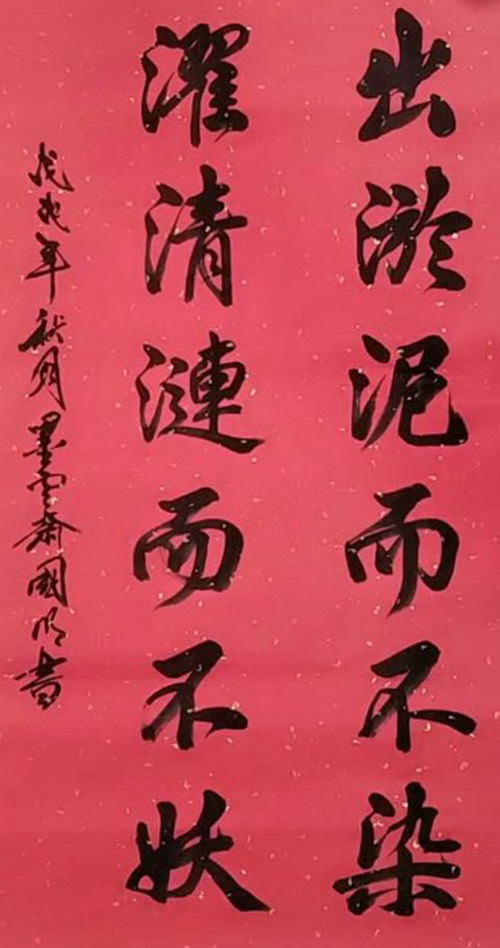 出淤泥而不染
濯清漣而不妖
戊戌年秋月墨雲齋國明書